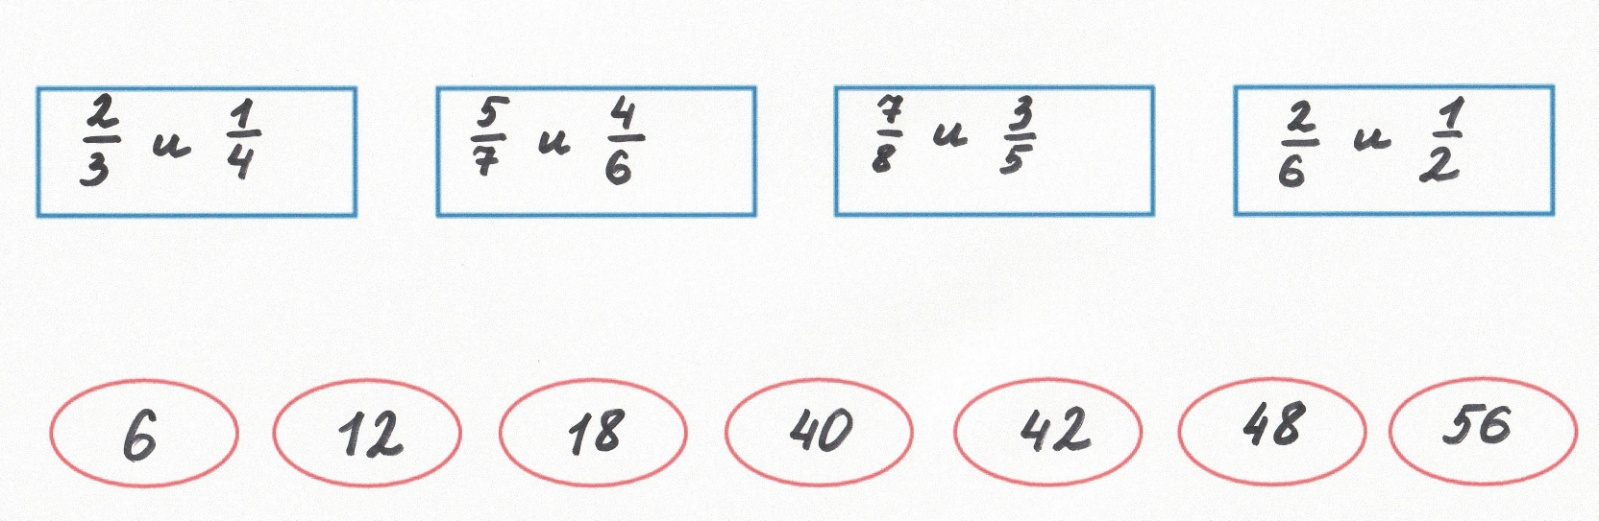 2/3 и 1/4
5/7 и 4/6
7/8 и 3/5
2/6 и 1/2
6 12 18 40 42 48 56